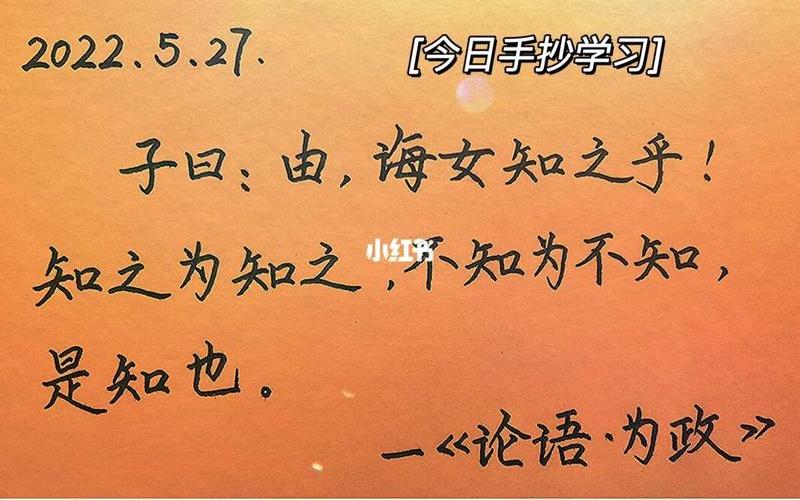 2022.5.27.
[今日手抄学习]
子曰：由，诲女知之乎！
知之为知之，不知为不知，
小红书
是知也。
—《论语·为政》